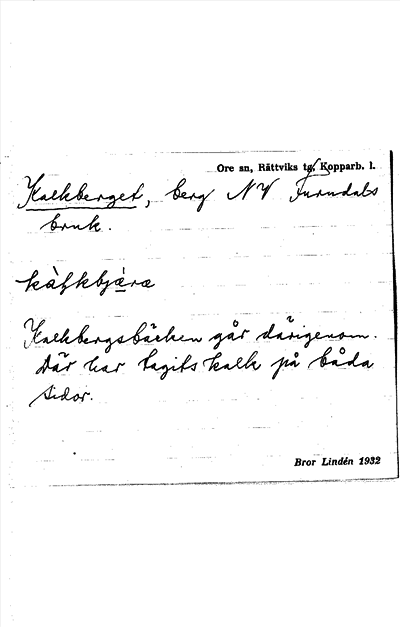 Ore sn, Rättviks tg, Kopparb. l.
Kalkberget, berg NV Furudals
bruk.
kàl̥kbjæ̀ræ
Kalkbergsbäcken går därigenom.
Där har tagits kalk på båda
sidor.
Bror Lindén 1932